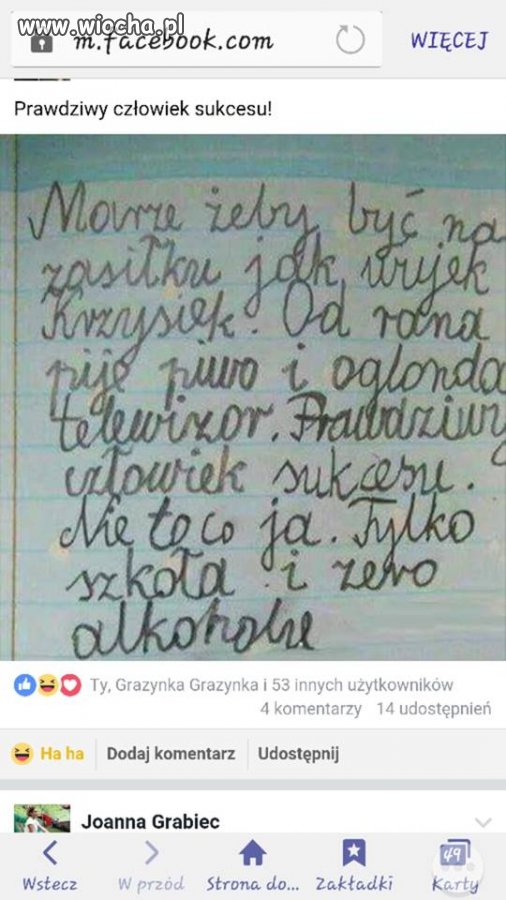 www.wiocha.pl
m.facebook.com WIĘCEJ
Prawdziwy człowiek sukcesu!
Marze żeby być na
zasiłku jak wujek
Krzysiek. Od rana
pije piwo i oglonda
telewizor. Prawdziwy
człowiek sukcesu.
Nie to co ja. Tylko
szkoła i zero
alkoholu
Ty, Grazynka Grazynka i 53 innych użytkowników
4 komentarzy 14 udostępnień
Ha ha Dodaj komentarz Udostępnij
Joanna Grabiec
49
Wstecz W przód Strona do... Zakładki Karty